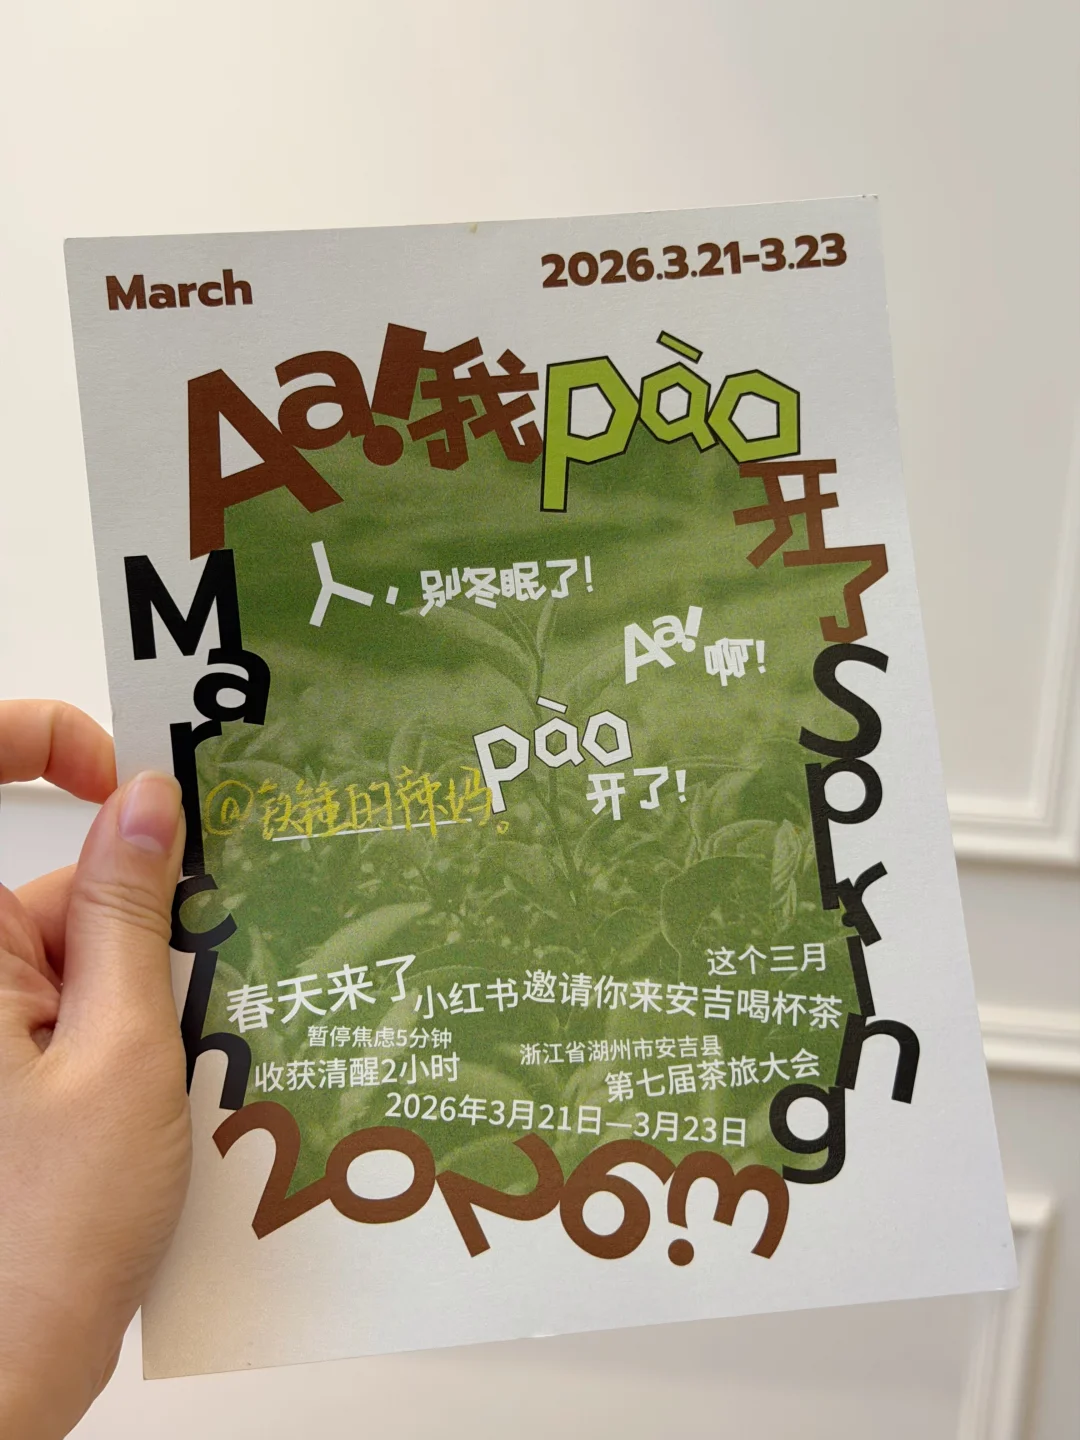 March
2026.3.21-3.23
Aa!我pào开了
March
Spring
人，别冬眠了!
Aa!啊!
pào开了!
@铁锤的辣妈。
春天来了
暂停焦虑5分钟
收获清醒2小时
这个三月
小红书邀请你来安吉喝杯茶
浙江省湖州市安吉县
第七届茶旅大会
2026年3月21日—3月23日
2026.3